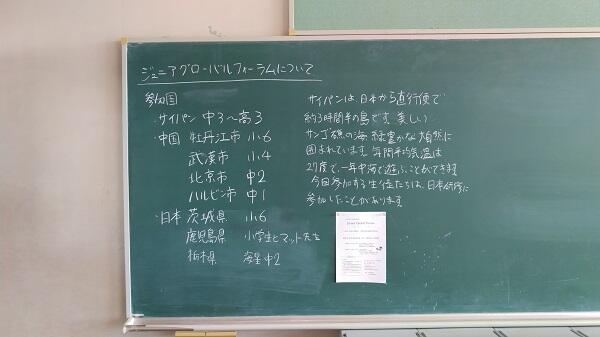 ジュニアグローバルフォーラムについて
参加国
・サイパン 中3〜高3
・中国 牡丹江市 小6
武漢市 小4
北京市 中2
ハルビン市 中1
・日本 茨城県 小6
鹿児島県 小学生とマット先生
栃木県 中2
サイパンは、日本から直行便で
約3時間半の島です。美しい
サンゴ礁の海、緑豊かな大自然に
囲まれています。年間平均気温は
27度で、一年中海で遊ぶことができます
今回参加する生徒たちは、日本研修に
参加したことがあります